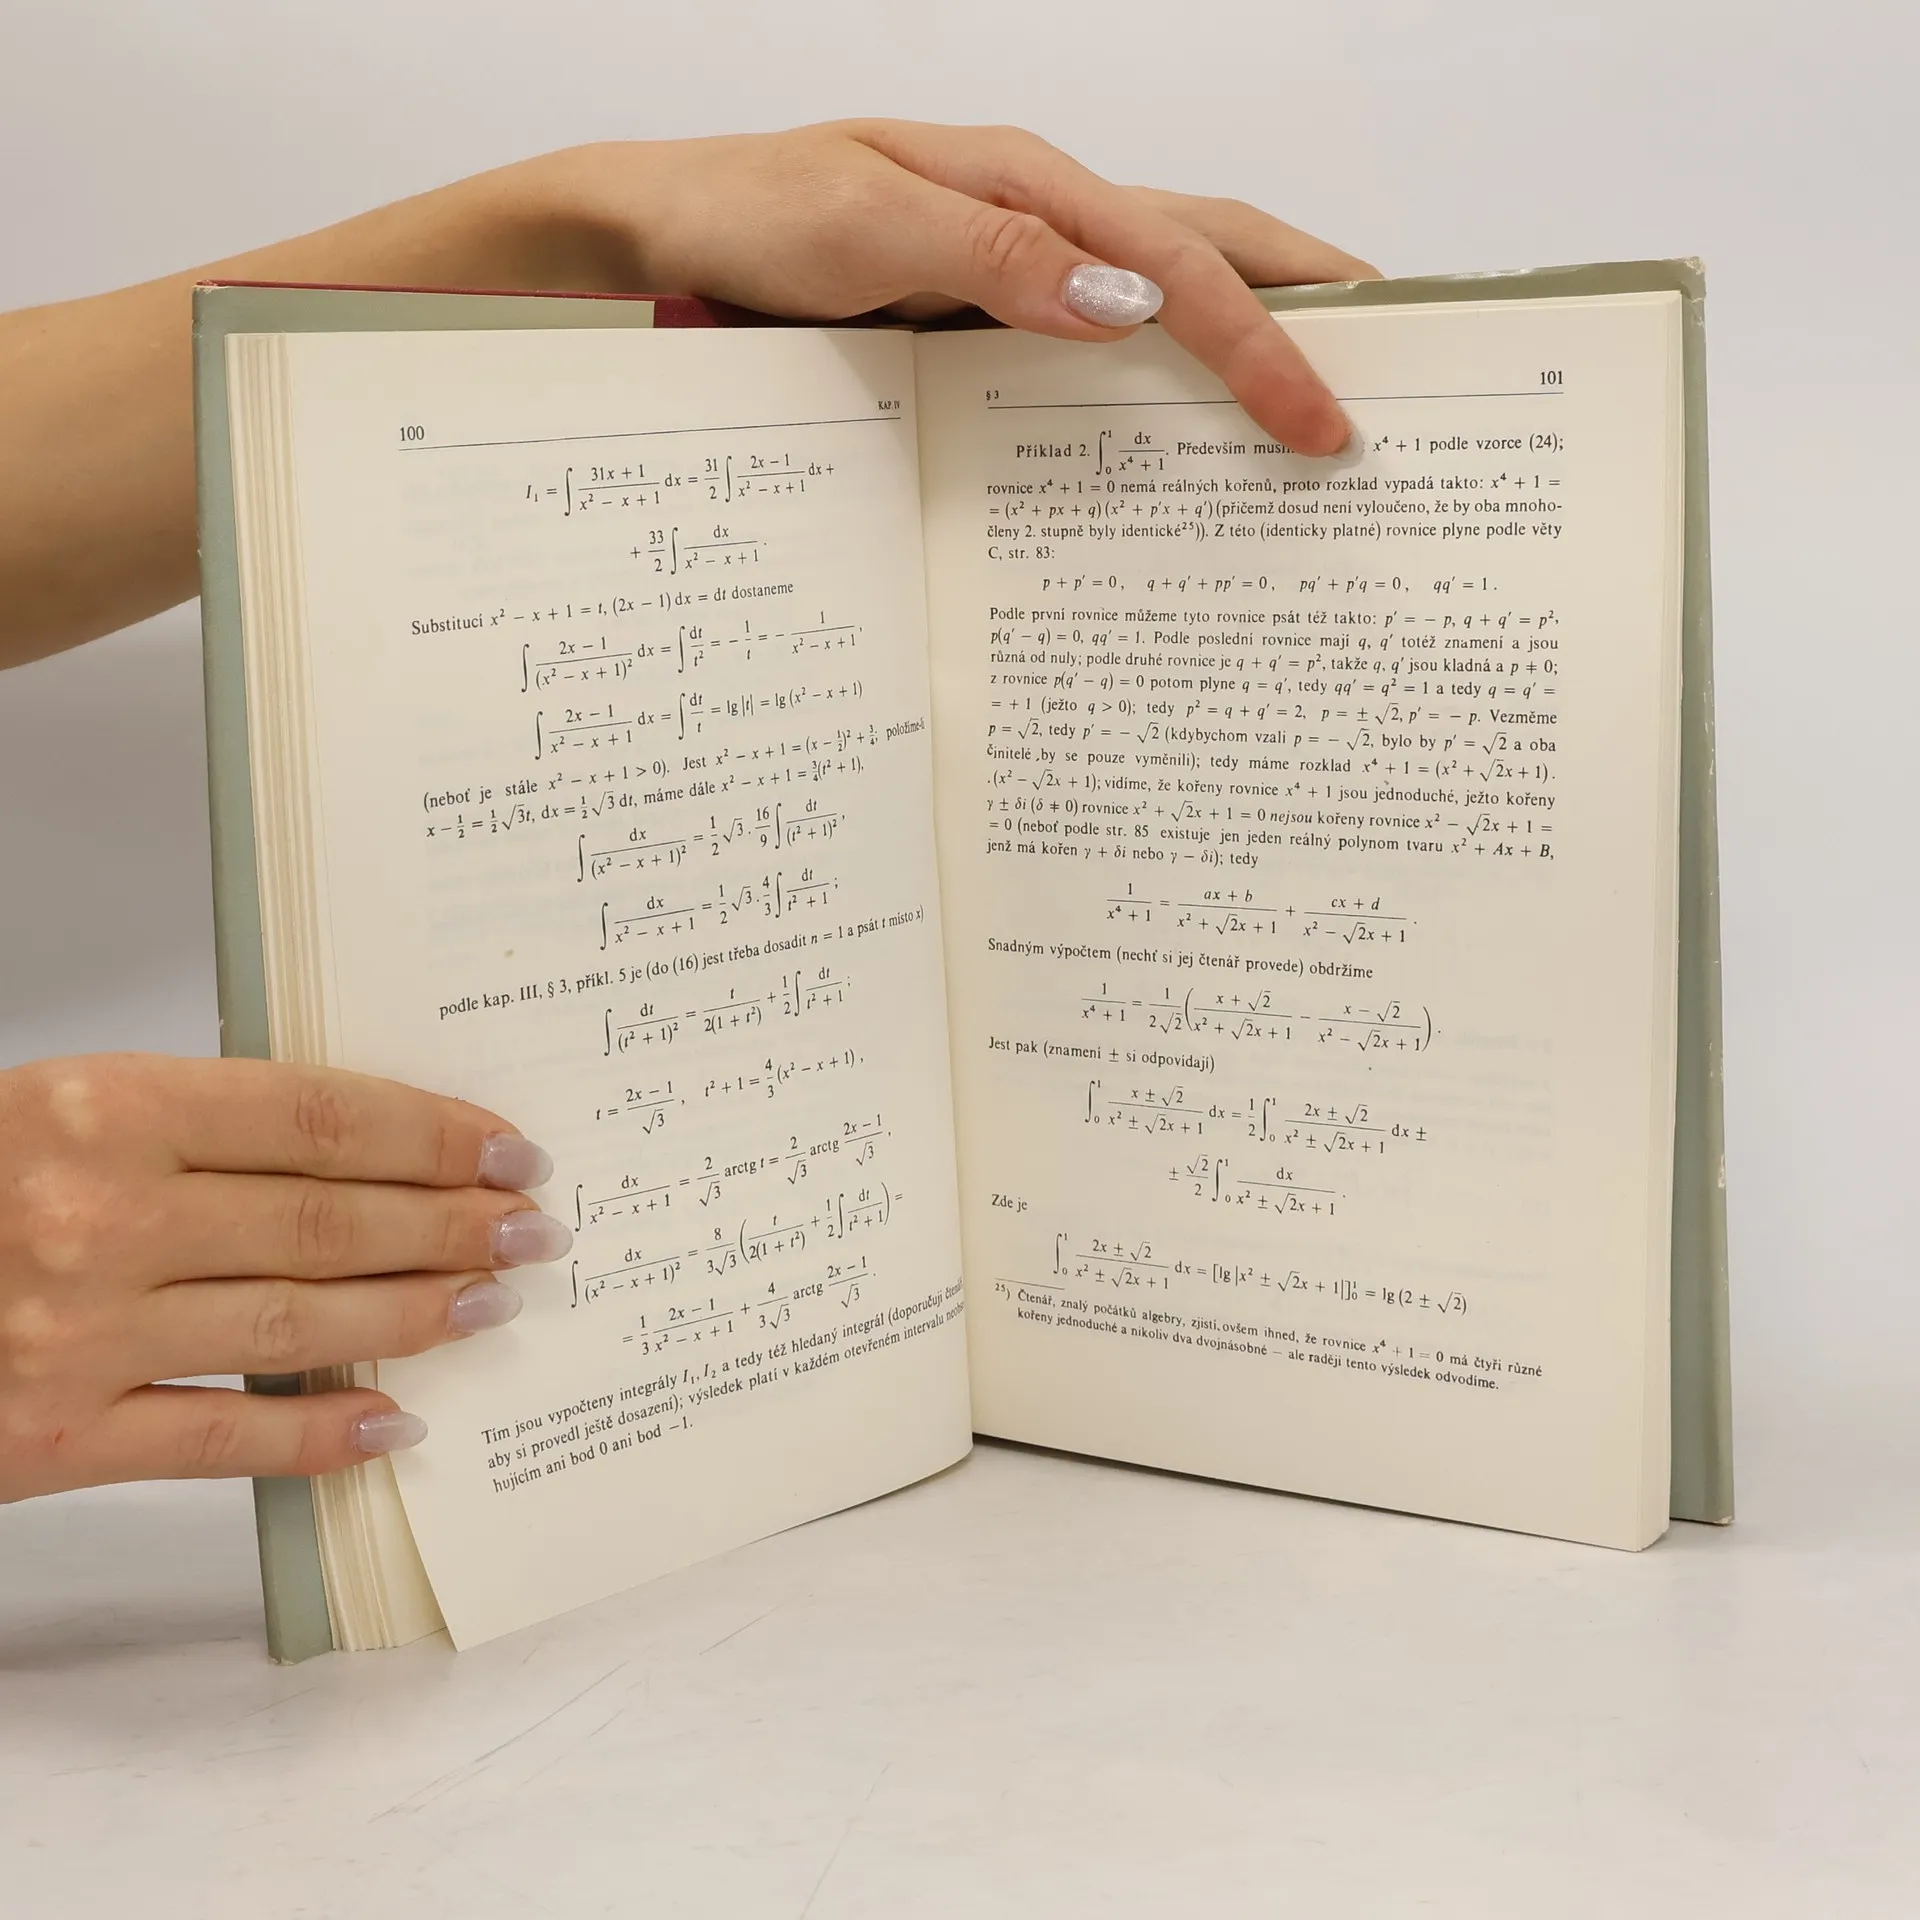 100
KAP. IV
I₁ = ∫ (31x + 1)/(x² − x + 1) dx = 31/2 ∫ (2x − 1)/(x² − x + 1) dx +
+ 33/2 ∫ dx/(x² − x + 1) .
Substitucí x² − x + 1 = t, (2x − 1) dx = dt dostaneme
∫ (2x − 1)/(x² − x + 1)² dx = ∫ dt/t² = − 1/t = − 1/(x² − x + 1) ,
∫ (2x − 1)/(x² − x + 1) dx = ∫ dt/t = lg |t| = lg (x² − x + 1)
(neboť je stále x² − x + 1 > 0). Jest x² − x + 1 = (x − ½)² + ¾; položíme-li
x − ½ = ½ √3t, dx = ½ √3 dt, máme dále x² − x + 1 = ¾(t² + 1),
∫ dx/(x² − x + 1)² = 1/2 √3 . 16/9 ∫ dt/(t² + 1)² ,
∫ dx/(x² − x + 1) = 1/2 √3 . 4/3 ∫ dt/(t² + 1) ;
podle kap. III, § 3, příkl. 5 je (do (16) jest třeba dosadit n = 1 a psát t místo x)
∫ dt/(t² + 1)² = t/(2(1 + t²)) + 1/2 ∫ dt/(t² + 1) ;
t = (2x − 1)/√3 , t² + 1 = 4/3 (x² − x + 1) ,
∫ dx/(x² − x + 1) = 2/√3 arctg t = 2/√3 arctg (2x − 1)/√3 ,
∫ dx/(x² − x + 1)² = 8/(3√3) (t/(2(1 + t²)) + 1/2 ∫ dt/(t² + 1)) =
= 1/3 (2x − 1)/(x² − x + 1) + 4/(3√3) arctg (2x − 1)/√3 .
Tím jsou vypočteny integrály I₁, I₂ a tedy též hledaný integrál (doporučuji
aby si provedl ještě dosazení); výsledek platí v každém otevřeném intervalu
hujícím ani bod 0 ani bod −1.
§ 3
101
Příklad 2. ∫₀¹ dx/(x⁴ + 1) . Především x⁴ + 1 podle vzorce (24);
rovnice x⁴ + 1 = 0 nemá reálných kořenů, proto rozklad vypadá takto: x⁴ + 1 =
= (x² + px + q) (x² + p′x + q′) (přičemž dosud není vyloučeno, že by oba mnoho-
členy 2. stupně byly identické²⁵)). Z této (identicky platné) rovnice plyne podle věty
C, str. 83:
p + p′ = 0, q + q′ + pp′ = 0, pq′ + p′q = 0, qq′ = 1 .
Podle první rovnice můžeme tyto rovnice psát též takto: p′ = − p, q + q′ = p²,
p(q′ − q) = 0, qq′ = 1. Podle poslední rovnice mají q, q′ totéž znamení a jsou
různá od nuly; podle druhé rovnice je q + q′ = p², takže q, q′ jsou kladná a p ≠ 0;
z rovnice p(q′ − q) = 0 potom plyne q = q′, tedy qq′ = q² = 1 a tedy q = q′ =
= + 1 (ježto q > 0); tedy p² = q + q′ = 2, p = ± √2, p′ = − p. Vezměme
p = √2, tedy p′ = − √2 (kdybychom vzali p = − √2, bylo by p′ = √2 a oba
činitelé by se pouze vyměnili); tedy máme rozklad x⁴ + 1 = (x² + √2x + 1) .
.(x² − √2x + 1); vidíme, že kořeny rovnice x⁴ + 1 jsou jednoduché, ježto kořeny
γ ± δi (δ ≠ 0) rovnice x² + √2x + 1 = 0 nejsou kořeny rovnice x² − √2x + 1 =
= 0 (neboť podle str. 85 existuje jen jeden reálný polynom tvaru x² + Ax + B,
jenž má kořen γ + δi nebo γ − δi); tedy
1/(x⁴ + 1) = (ax + b)/(x² + √2x + 1) + (cx + d)/(x² − √2x + 1) .
Snadným výpočtem (nechť si jej čtenář provede) obdržíme
1/(x⁴ + 1) = 1/(2√2) ((x + √2)/(x² + √2x + 1) − (x − √2)/(x² − √2x + 1)) .
Jest pak (znamení ± si odpovídají)
∫₀¹ (x ± √2)/(x² ± √2x + 1) dx = 1/2 ∫₀¹ (2x ± √2)/(x² ± √2x + 1) dx ±
± √2/2 ∫₀¹ dx/(x² ± √2x + 1) .
Zde je
∫₀¹ (2x ± √2)/(x² ± √2x + 1) dx = [lg |x² ± √2x + 1|]₀¹ = lg (2 ± √2)
²⁵) Čtenář, znalý počátků algebry, zjistí ovšem ihned, že rovnice x⁴ + 1 = 0 má čtyři různé
kořeny jednoduché a nikoliv dva dvojnásobné — ale raději tento výsledek odvodíme.